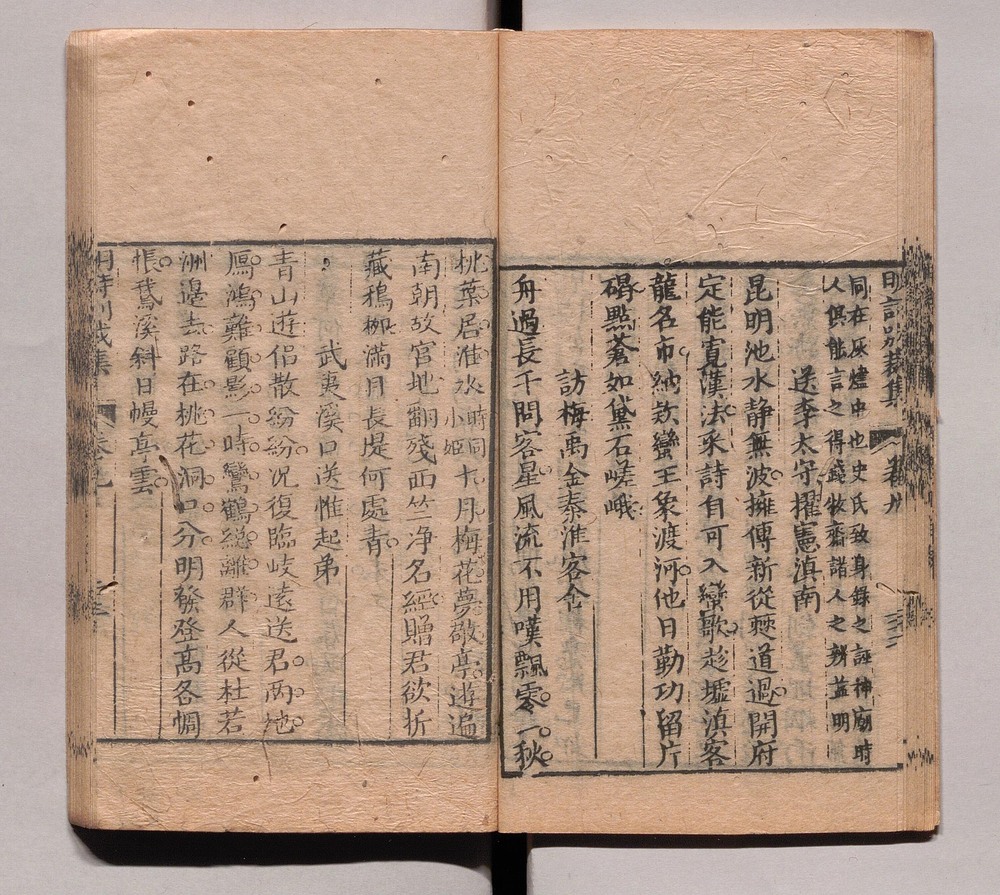 明詩別裁集
同在灰燼中也史氏致身錄之誣神廟時
人俱能言之得錢牧齋諸人之辨益明
送李太守擢憲滇南
昆明池水静無波擁傳新從僰道過開府
定能寬漢法采詩自可入蠻歌趁墟滇客
龍名市納欵蠻王象渡河他日勒功留片
碣點蒼如黛石嵯峨
訪梅禹金秦淮客舍
舟過長干問客星風流不用嘆飄零一秋
桃葉居淮水時同小姬十月梅花夢敬亭遊遍
南朝故宮地翻殘西竺净名經贈君欲折
藏鴉柳滿月長堤何處青
武夷溪口送惟起弟
青山遊侶散紛紛况復臨岐遠送君两地
鴈鴻難顧影一時鸞鶴縂離群人從杜若
洲邊去路在桃花洞口分明發登高各惆
悵鵞溪斜日幔亭雲
明詩別裁集 卷九